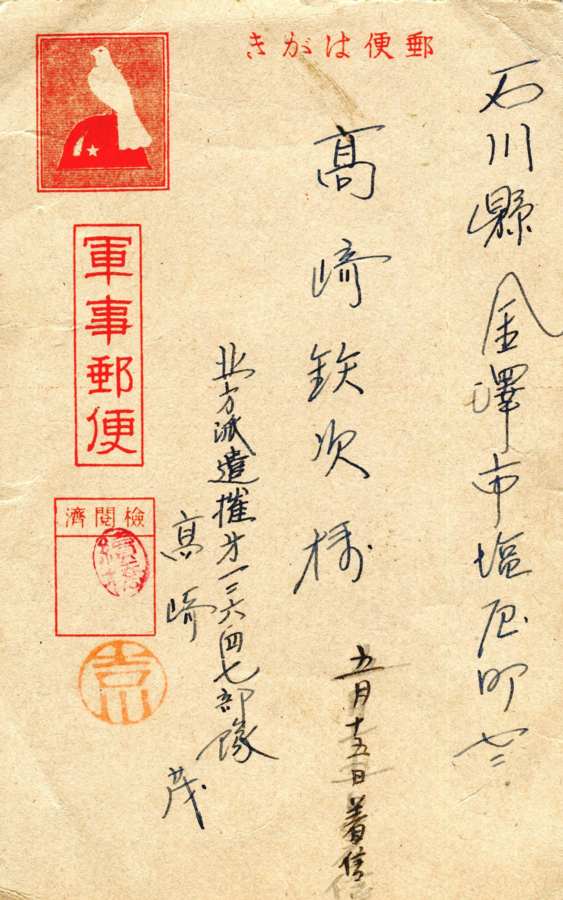 郵便はがき
石川縣金澤市塩屋町七三
高崎鉄次様
五月十五日着信
北方派遣摧才一三六四七部隊
高崎茂
軍事郵便
檢閲濟
吉川